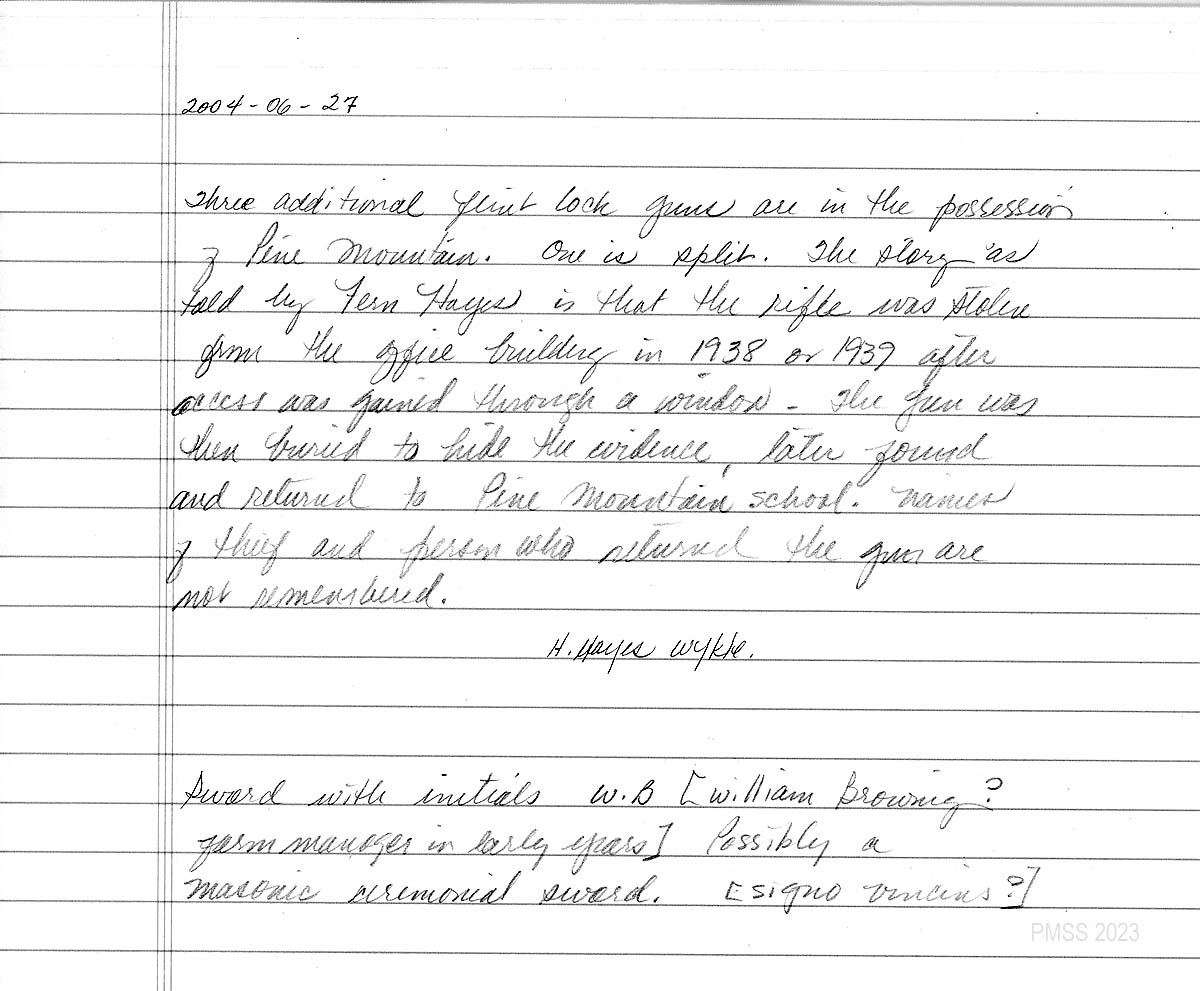 2004-06-27
Three additional flint lock guns are in the possession
of Pine Mountain. One is split. The story as
told by Fern Hayes is that the rifle was stolen
from the office building in 1938 or 1939 after
access was gained through a window - The gun was
then buried to hide the evidence, later found
and returned to Pine Mountain school. Names
of thief and person who returned the gun are
not remembered.
H. Hayes Wykle.
Sword with initials W.B [William Browning?
farm manager in early years] Possibly a
Masonic ceremonial sword. [signo
PMSS 2023